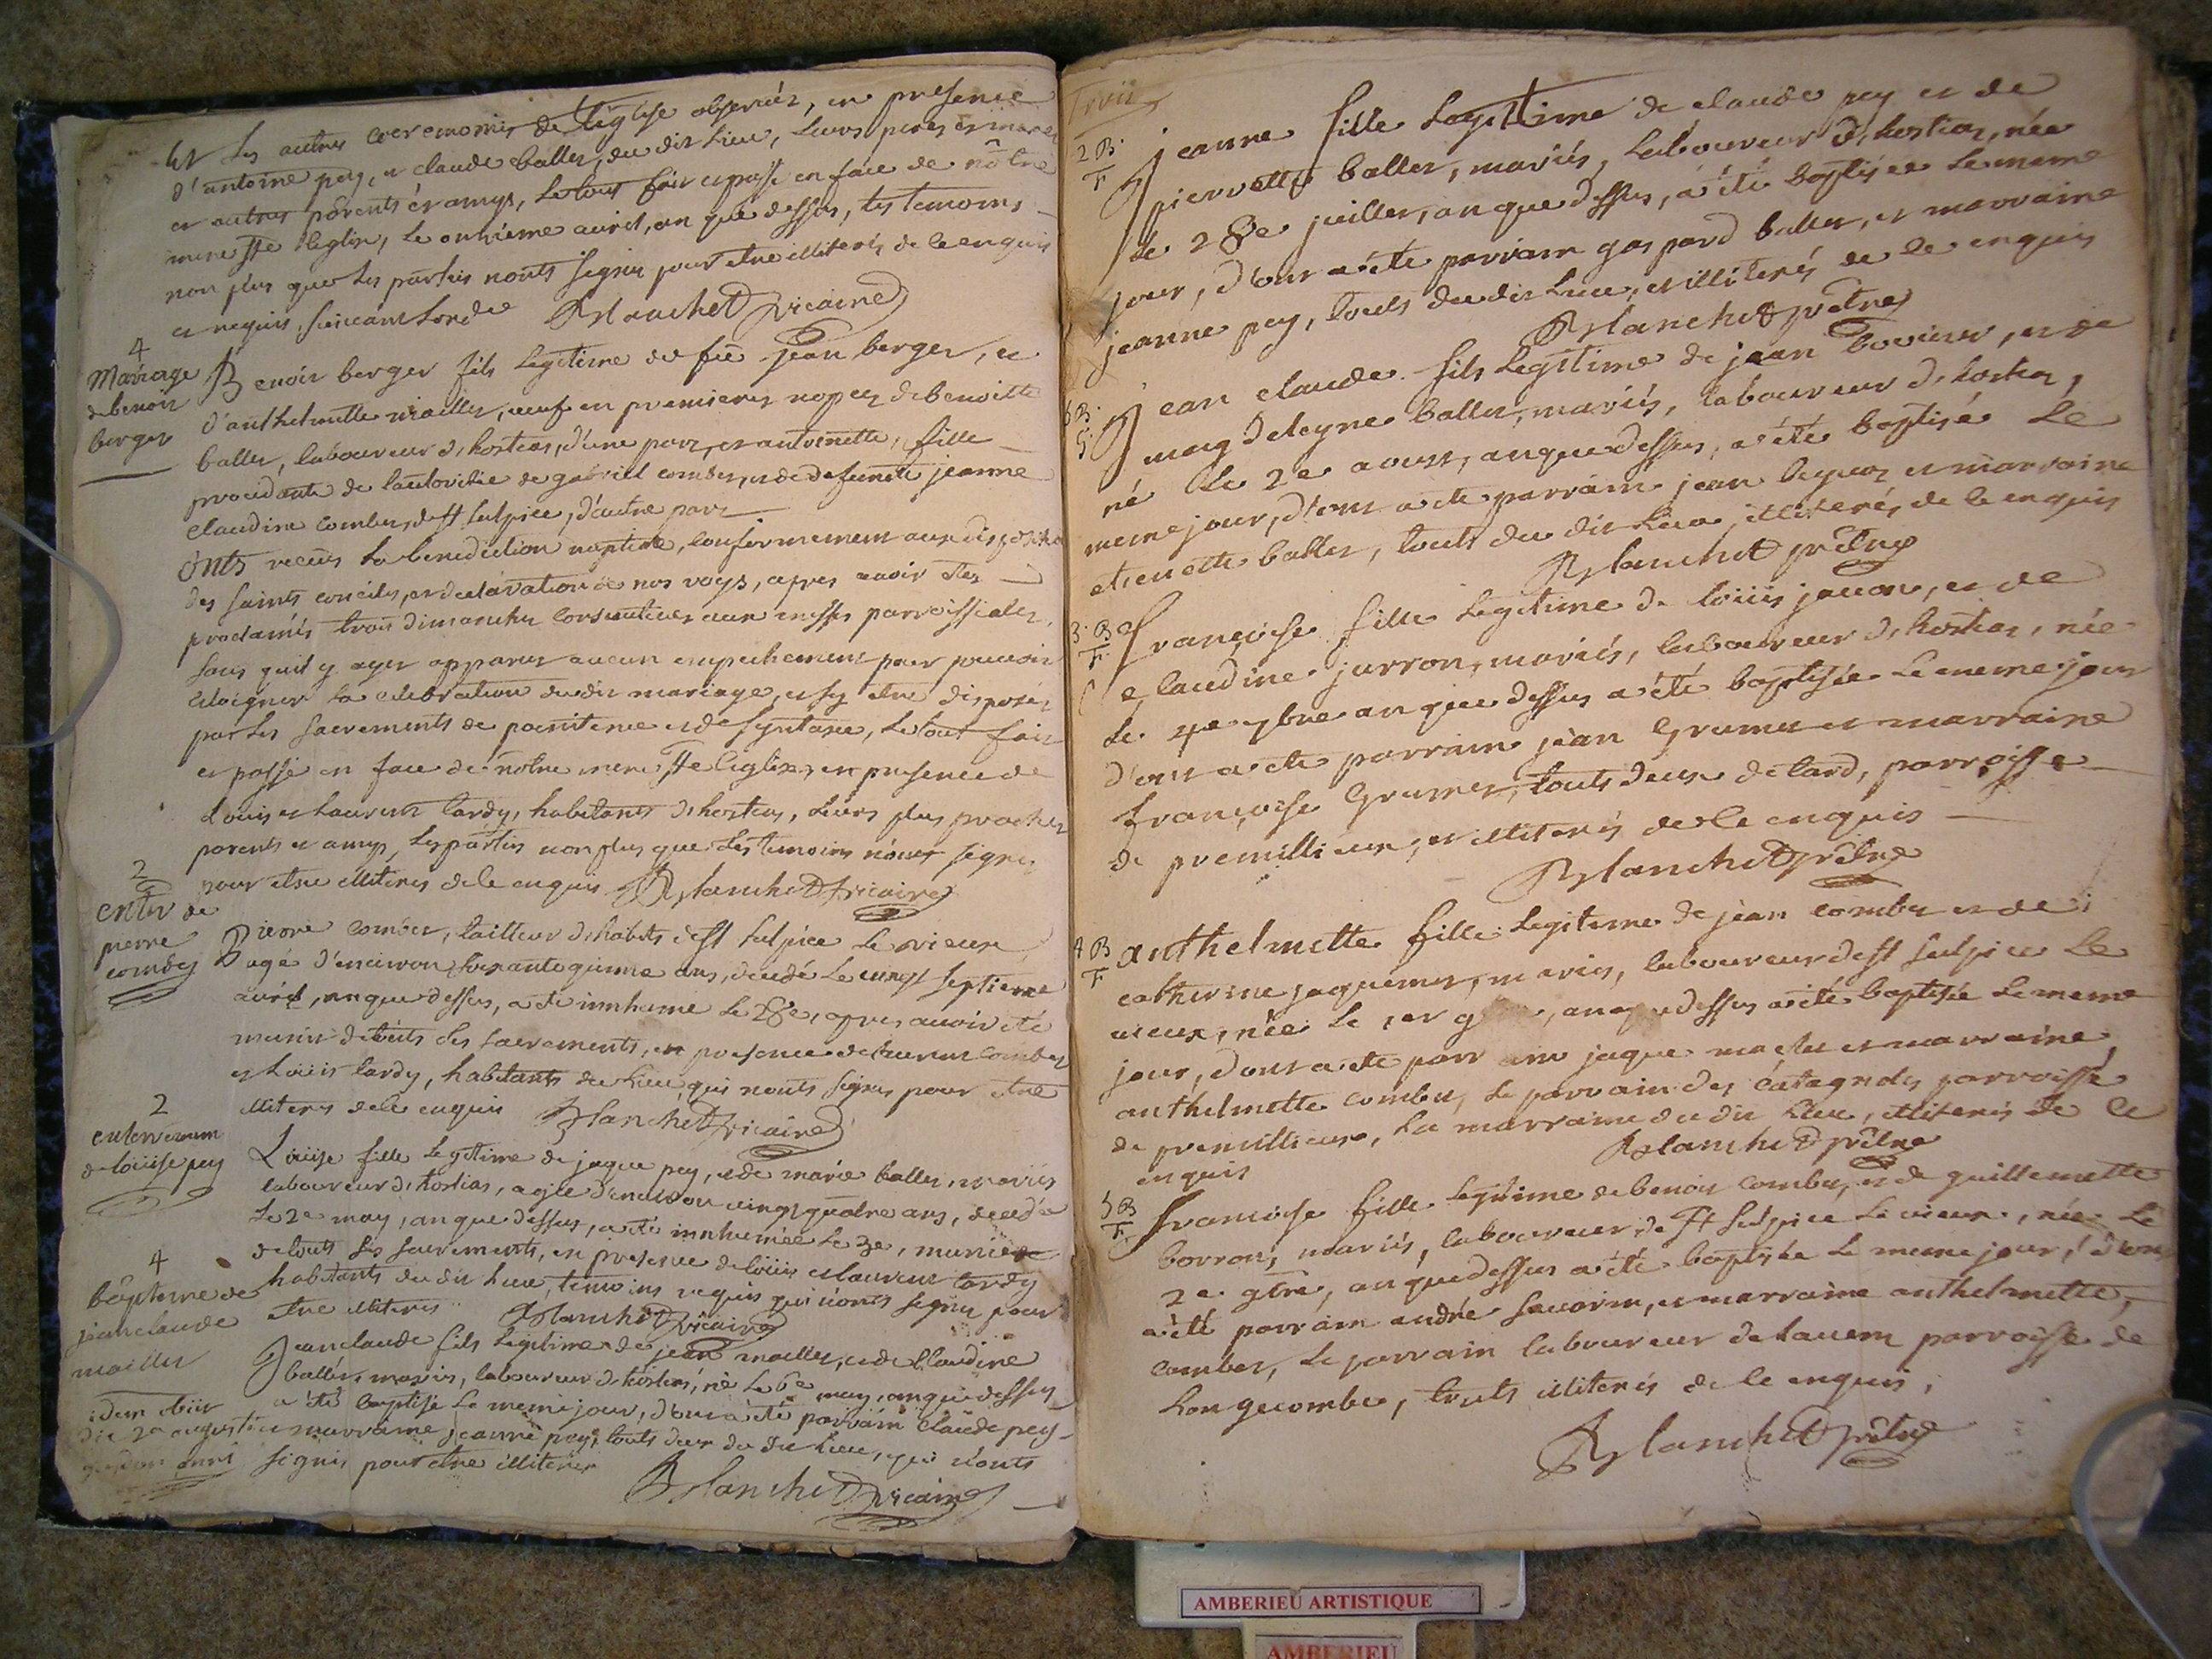 Et les autres ceremonies de l'eglise observées, en presence
d'antoine pey, et claude balley, du dit lieu, leurs peres et meres
et autres parents et amys, le tout fait et passé en face de nôtre
mere Ste eglise, le onzième avril, an que dessus, les temoins
non plus que les parties n'onts signés pour etre illiterés de ce enquis
et requis, suivant l'orde Blanchet vicaire
4
Mariage
de benoit
berger
Benoit berger fils legitime de feü jean berger, et
d'anthelmette mailler, veuf en premieres nopces de benoitte
balley, laboureur d'hostias, d'une part, et antoinette, fille
procedante de l'authoritée de gabriel combes, et de defuncte jeanne
claudine combes, de St sulpice, d'autre part
onts recüs la benediction nuptiale, conformement aux disposition
des saints conciles, et declaration de nos roys, apres avoir etes
proclamés trois dimanches consecutives aux messes parroissiales,
sans quil y ayet apparus aucun empechement pour pouvoir
eloigner la celebration du dit mariage, et sy etre disposés
par les sacrements de pœnitence et de syntaxe, le tout fait
et passé en face de nôtre mere Ste eglise, en presence de
Louis et Laurent tardy, habitants d'hostias, leurs plus proches
parents et amys, les parties non plus que les temoins n'onts signés
pour etre illiterés de ce enquis Blanchet vicaire
2
entr de
pierre
combes
Pierre combes, tailleur d'habits de St sulpice le vieux,
agé d'environ soixante quinze ans, decedé le vingt septieme
avril, an que dessus, a eté innhumé le 28e, apres avoir eté
munis de touts les sacrements, en presence de laurent combes
et Louis tardy, habitants du lieu, qui n'onts signés pour etre
illiterés de ce enquis Blanchet vicaire
2
enterrement
de loüise pey
Loüise fille legitime de jaque pey, et de marie balley, mariés
laboureur d'hostias, agée d'environ vingt quatre ans, decedée
le 2e may, an que dessus, a eté innhumée le 3e, munie
de touts les sacrements, en presence de loüis et laurent tardy
habitants du dit lieu, temoins requis qui n'onts signés pour
etre illiterés Blanchet vicaire
4
bâpteme de
jean claude
mailler
idem obiit
die 2a augusti
anni
Jean claude fils legitime de jean mailler, et de claudine
balley, mariés, laboureur d'hostias, né le 6e may, an que dessus
a eté baptisé le meme jour, dont a eté parrain claude pey
et marraine jeanne pey, touts deux du dit lieu, qui n'onts
signés pour etre illiterés Blanchet vicaire
Trois
2 B.
F
Jeanne fille legitime de claude pey et de
pierrette balley, mariés, laboureur d'hostias, née
le 28e juillet, an que dessus, a été baptisée le meme
jour, d'ont a été parrain gaspard balley, et marraine
jeanne pey, touts du dit lieu, et illiterés de ce enquis
Blanchet prêtre
B.
G.
Jean claude fils legitime de jean bouvier, et de
magdeleyne balley, mariés, laboureur d'hostias,
né le 2e aoust, an que dessus, a été baptisé le
meme jour, d'ont a eté parrain jean et marraine
etienette balley, touts du dit lieu, illiterés de ce enquis
Blanchet prêtre
3. B
F.
Françoise fille legitime de loüis jacon, et de
claudine jarron, mariés, laboureur d'hostias, née
le 4e 7bre an que dessus a été baptisée le meme jour
d'ont a eté parrain jean Grumet et marraine
françoise Grumet, touts deux de lard, parroisse
de premillieux, et illiterés de ce enquis
Blanchet prêtre
4 B
F
anthelmette fille legitime de jean combes et de
catherine jaquemet, mariés, laboureur de St sulpice le
vieux, née le 1er , an que dessus a été baptisée le meme
jour, dont a eté parrain jaque et marraine
anthelmette combes, le parrain des catagnoles parroisse
de premillieux, la marraine du dit lieu, illiterés de ce
enquis Blanchet prêtre
5 B
F
Francoise fille legitime de benoit combes, et de guillemette
borron, mariés, laboureur de St sulpice le vieux, née le
2e 9bre, an que dessus a été baptisée le meme jour, d'ont
a été parrain andré savarin, et marraine anthelmette
combes, le parrain laboureur de lavent parroisse de
Longecombe, touts illiterés de ce enquis,
Blanchet prêtre
AMBERIEU ARTISTIQUE
AMBERIEU